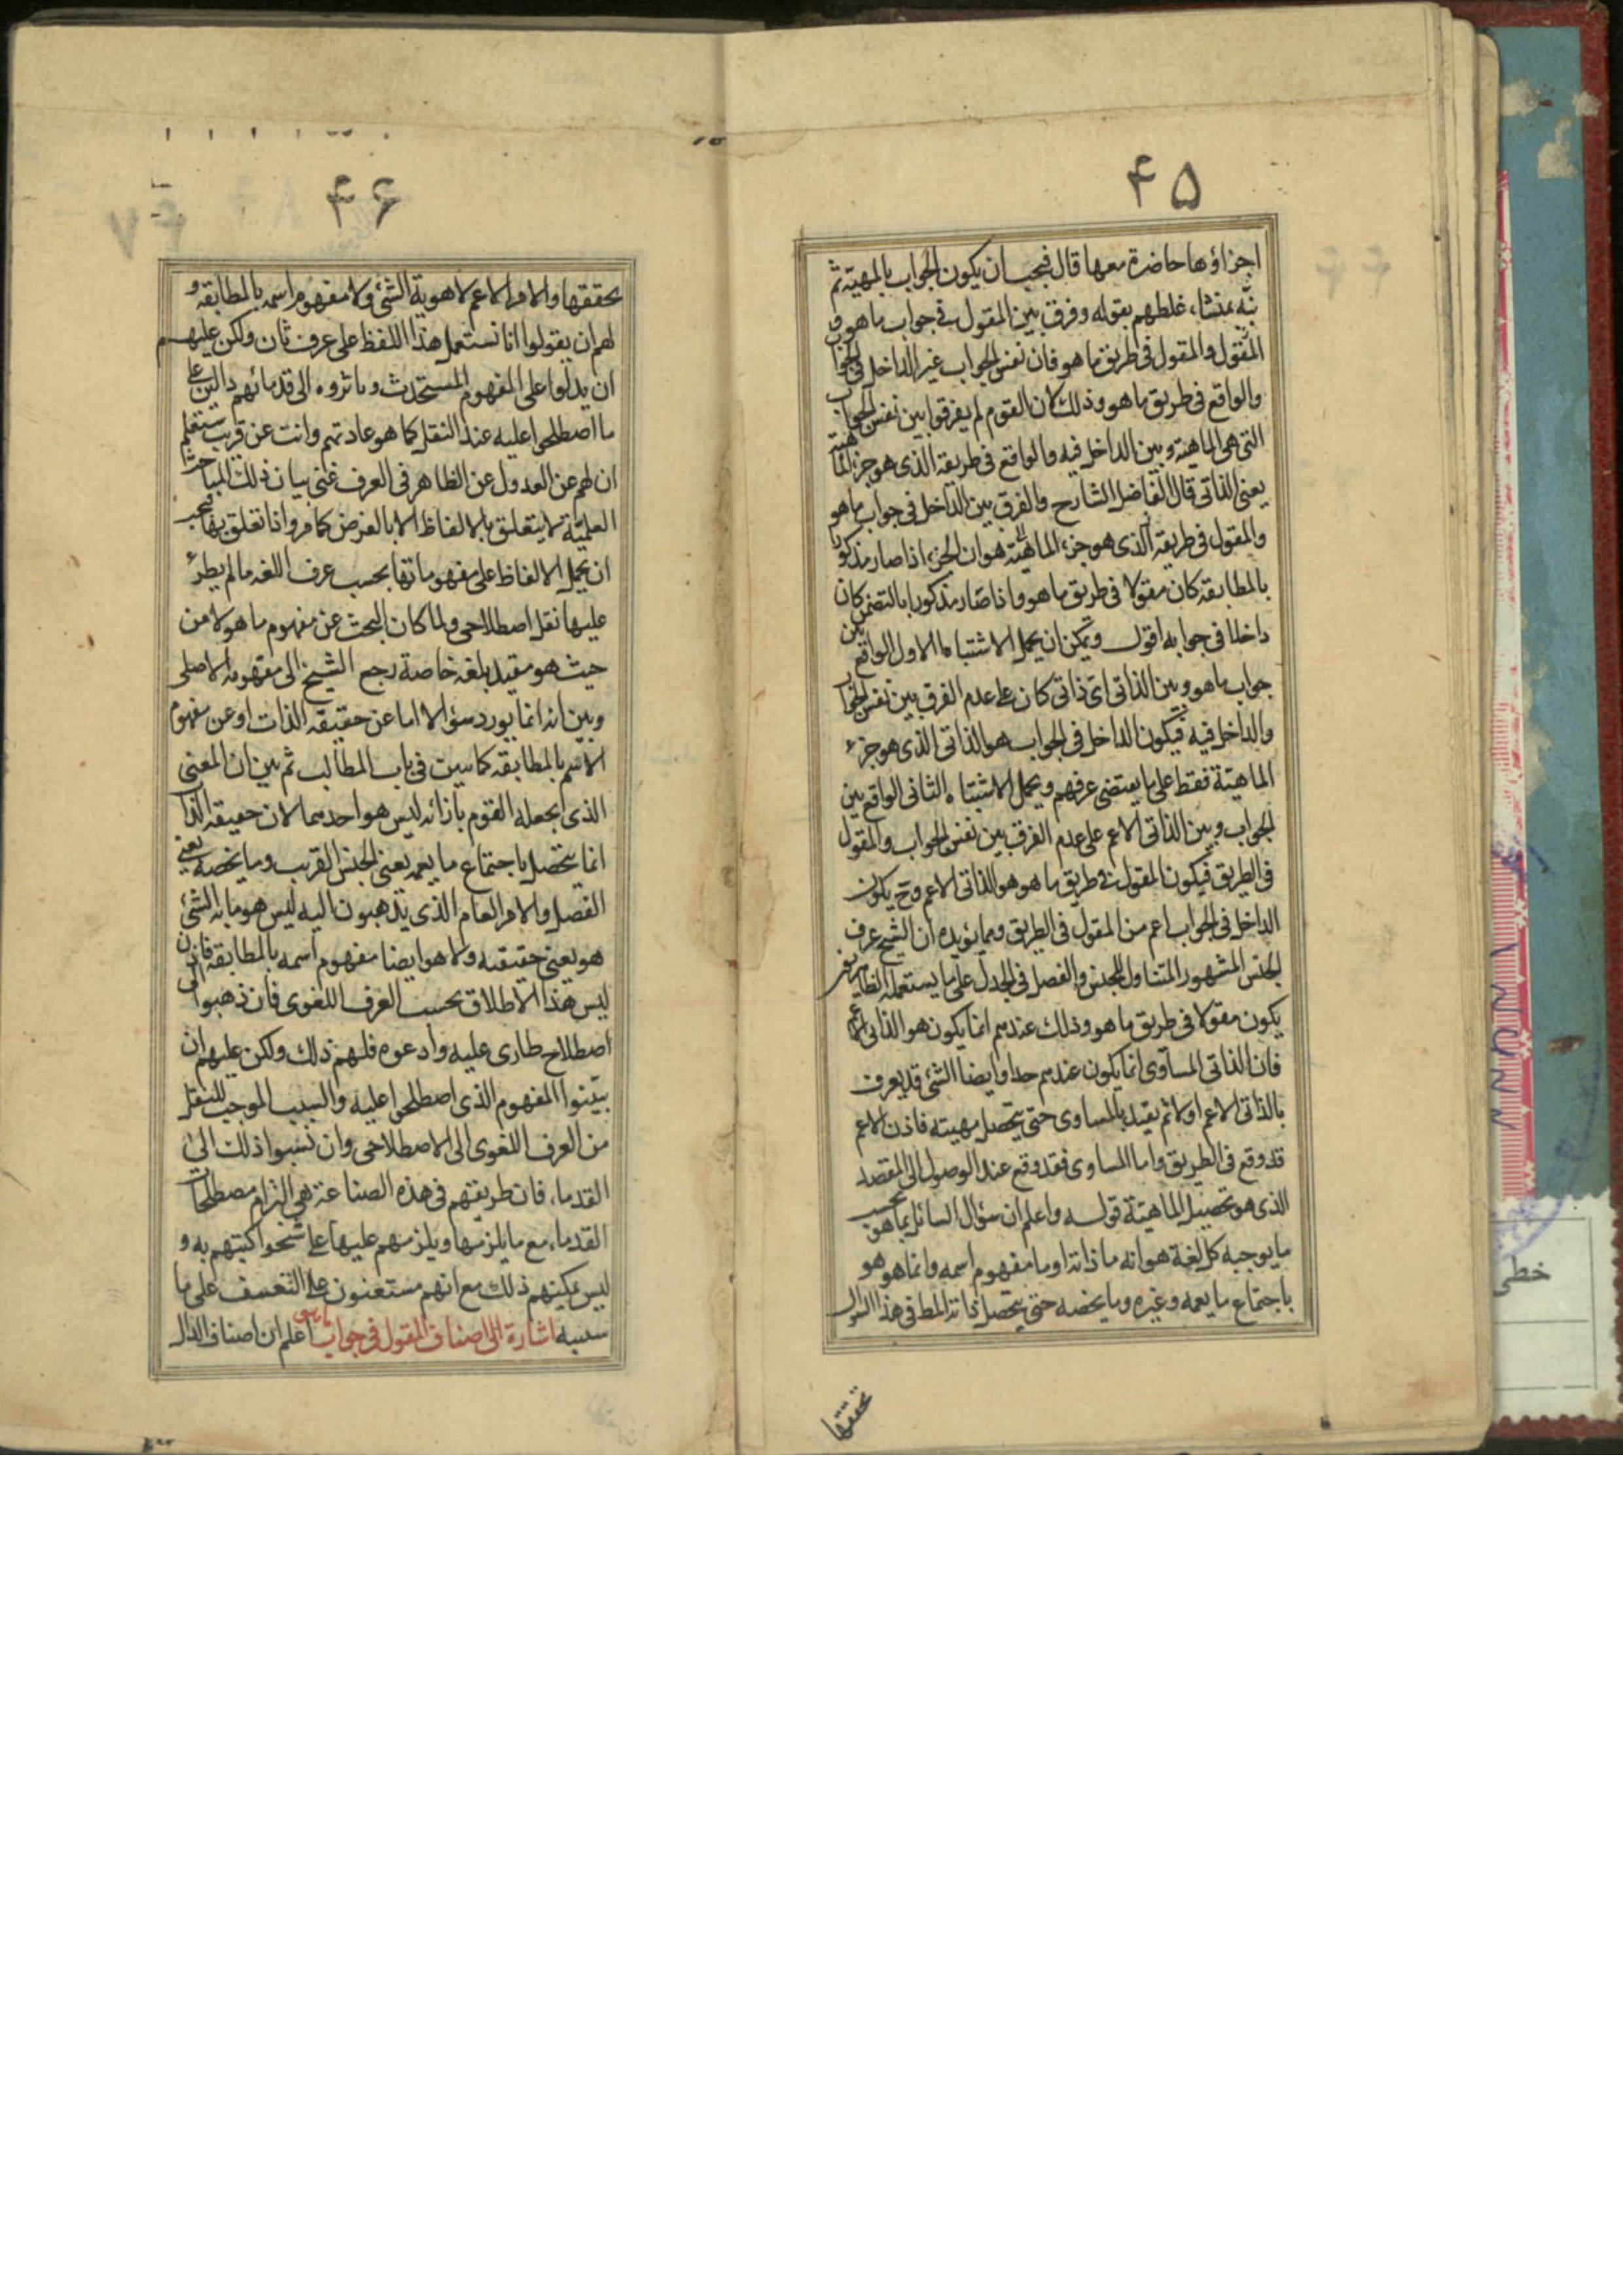 ۴۵
اجزاؤها حاضرة معها قال فيجب ان يكون الجواب بالمهية ثم
نبّه بمنشاء غلطهم بقوله وفرق بين المقول في جواب ما هو و
المقول والمقول في طريق ما هو فان نفس الجواب غير الداخل في الجواب
والواقع في طريق ما هو وذلك لان القوم لم يفرقوا بين نفس الجواب
التي هي الماهية وبين الداخل فيه والواقع في طريقه الذي هو جزء الماهية
يعنى الذاتى قال الفاضل الشارح والفرق بين الداخل في جواب ما هو
والمقول في طريقه الذي هو جزء الماهية هو ان الجزء اذا صار مذكورا
بالمطابقه كان مقولا في طريق ما هو واذا صار مذكورا بالتضمن كان
داخلا في جوابه اقول ويمكن ان يحمل الاشتباه الاول الواقع بين
جواب ما هو وبين الذاتى اى ذاتى كان على عدم الفرق بين نفس الجواب
والداخل فيه فيكون الداخل في الجواب هو الذاتى الذي هو جزء
الماهية فقط على ما يقتضى عرفهم ويحمل الاشتباه الثانى الواقع بين
الجواب وبين الذاتى الاعم على عدم الفرق بين نفس الجواب والمقول
في الطريق فيكون المقول في طريق ما هو هو الذاتى الاعم وح يكون
الداخل في الجواب اعم من المقول في الطريق ومما يؤيده ان الشيخ عرف
الجنس المشهور المتناول للجنس والفصل في الجدل على ما يستعمله الظاهريون
يكون مقولا في طريق ما هو وذلك عندهم انما يكون هو الذاتى الاعم
فان الذاتى المساوى انما يكون عندهم حدا وايضا الشئ قد يعرف
بالذاتى الاعم اولا ثم يقيد بالمساوى حتى يتحصل مهيته فاذن الاعم
قد وقع في الطريق واما المساوى فقد وقع عند الوصول الى المقصد
الذي هو تحصيل الماهية قوله واعلم ان سؤال السائل بما هو بحسب
ما يوجبه كل لغة هو انه ما ذاته او ما مفهوم اسمه وانما هو هو
باجتماع ما يعمه وغيره وما يخصه حتى يتحصل ذاته المط في هذا السؤال
تحققها
۴۶
تحققها والامر الاعم لا هوية الشئ ولا مفهوم اسمه بالمطابقه و
لهم ان يقولوا انا نستعمل هذا اللفظ على عرف ثان ولكن عليهم
ان يدلوا على المفهوم المستحدث وياثروه الى قدمائهم دالين على
ما اصطلحوا عليه عند النقل كما هو عادتهم وانت عن قريب ستعلم
ان لهم عن العدول عن الظاهر في العرف غنى بيان ذلك المباحث
العلمية لا يتعلق بالالفاظ الا بالعرض كما مر واذا تعلق بها فيجب
ان يحمل الالفاظ على مفهوماتها بحسب عرف اللغه ما لم يطرء
عليها نقل اصطلاحى ولما كان البحث عن مفهوم ما هو لا من
حيث هو مقيد بلغه خاصة رجع الشيخ الى مفهومه الاصلى
وبين انه انما يورد سؤالا اما عن حقيقه الذات او عن مفهوم
الاسم بالمطابقه كما سيت في باب المطالب ثم بين ان المعنى
الذى يجعله القوم بازائه ليس هو احدهما لان حقيقه الذات
انما يتحصل باجتماع ما يعمه يعنى الجنس القريب وما يخصه يعنى
الفصل والامر العام الذى يذهبون اليه ليس هو ما به الشئ
هو يعنى حقيقته ولا هو ايضا مفهوم اسمه بالمطابقه فاذن
ليس هذا الاطلاق بحسب العرف اللغوى فان ذهبوا الى
اصطلاح طارى عليه وادعوه فلهم ذلك ولكن عليهم ان
يبينوا المفهوم الذى اصطلحوا عليه والسبب الموجب للنقل
من العرف اللغوى الى الاصطلاحى وان نسبوا ذلك الى
القدماء فان طريقهم في هذه الصناعة هى التزام مصطلحات
القدماء مع ما يلزمها ويلزمهم عليها على شحوا كتبهم به و
ليس يمكنهم ذلك مع انهم مستغنون على التعسف على ما
سببه اشارة الى اصناف المقول في جواب ما هو اعلم ان اصناف الدال
خطى